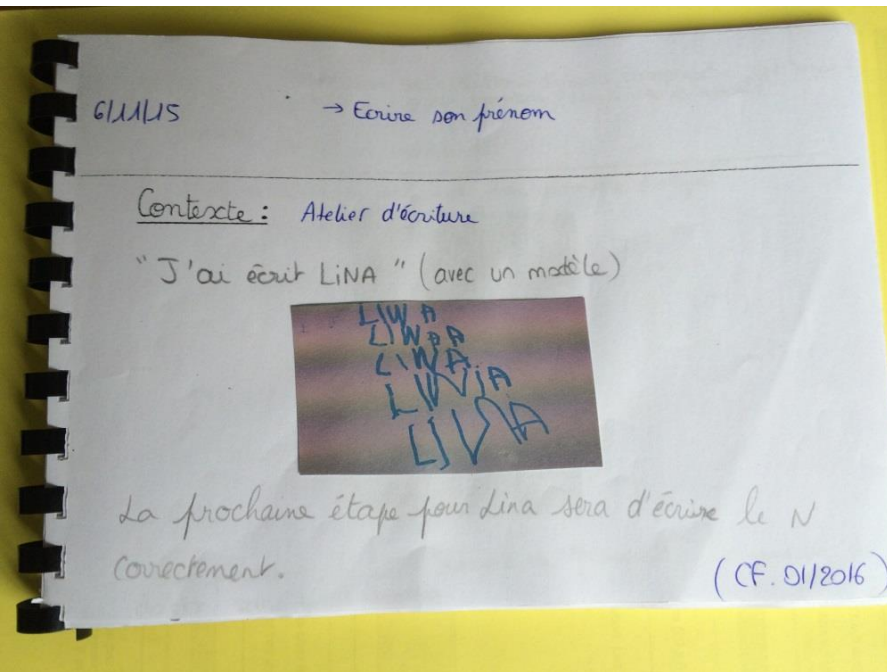 6/11/15 → Ecrire son prénom
Contexte : Atelier d'écriture
"J'ai écrit LiNA" (avec un modèle)
LIWA
LIWAA
LINA
LINiA
LINA
La prochaine étape pour Lina sera d'écrire le N
correctement.
(CF. 01/2016)